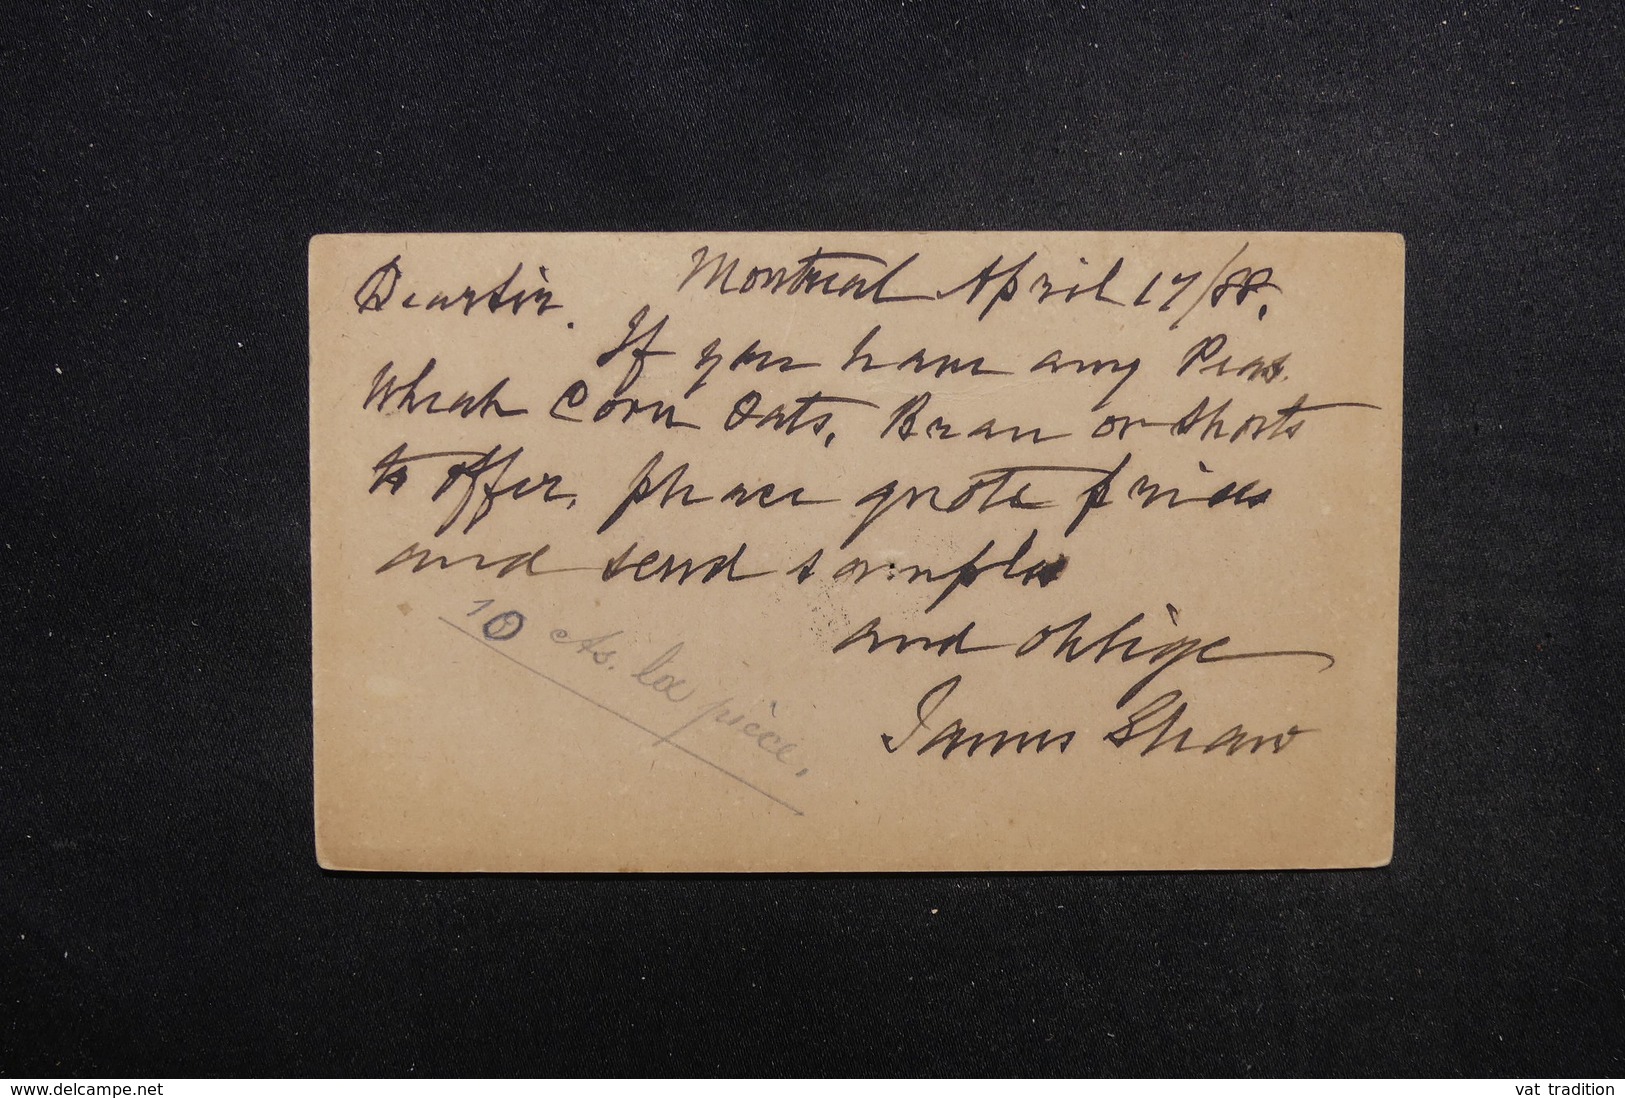 Montreal April 17/88.
Dear Sir.
If you have any Peas
Wheat Corn Oats, Bran or Shorts
to offer, please quote prices
and send samples
and oblige
James Shaw
10 cts. la pièce.
www.delcampe.net
vat tradition